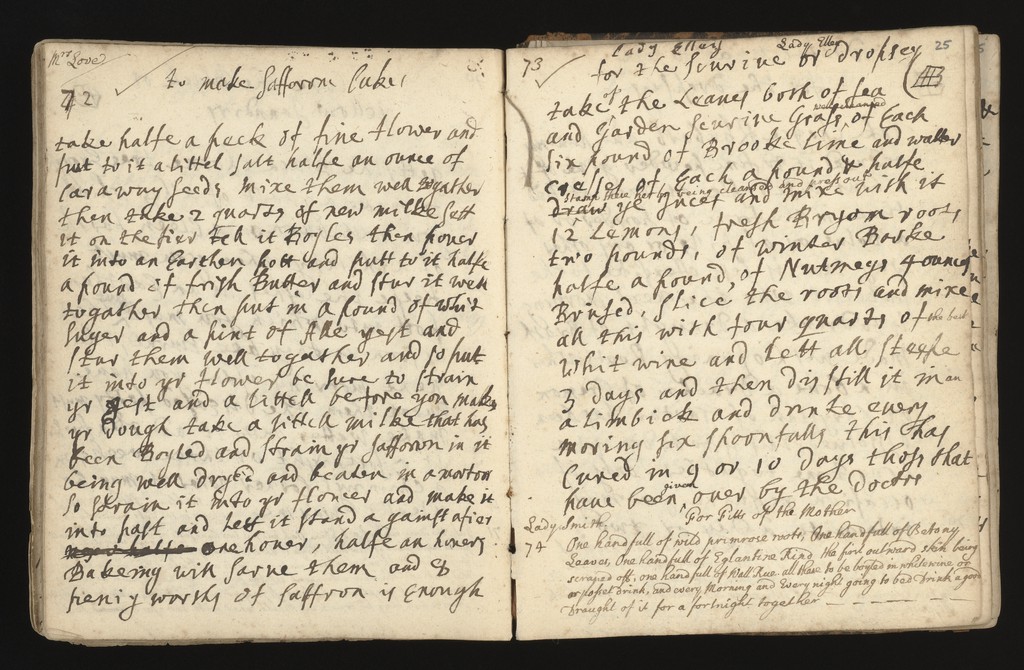 Mrs Love
to make Safforon Cake,
72
take halfe a peck of fine flower and
put to it a littel salt halfe an ounce of
Caraway seeds mixe them well togather
then take 2 quarts of new milke sett
it on the fier tell it Boyles then power
it into an Earthen pott and putt to it halfe
a pound of frish Butter and stur it well
togather then put in a pound of whit
suger and a pint of Alle yest and
stur them well togather and so put
it into yr flower be sure to strain
yr yest and a littell before you make
yr dough take a littell milke that has
been Boyled and strain yr safforon in it
being well dryed and beaten in a morton
so strain it into yr flower and make it
into past and lett it stand a gainst a fier
one hower, halfe an howers
Bakeing will sarve them and 8
peniy worth of saffron is Enough
25
Lady Elley Lady Elley
73 for the scurvie or dropsey
take of the Leaves both of sea
and Garden scurvie Grass, of Each well cleansed
six pound of Brooke lime and watter
Cresses of Each a pound & halfe
stamp these herbs being cleansed and press out
draw ye Juces and mixe with it
12 Lemons, fresh Bryom roots
two pounds, of winter Barke
halfe a pound, of Nutmegs 4 ounces
Brused, slice the roots and mixe
all this with four quarts of the best
whit wine and lett all steepe
3 Days and then disstill it in an
a limbick and drinke every
moring six spoonfulls this has
Cured in 9 or 10 Days thoss that
have been given over by the Doctor
For Fitts of the Mother
Lady Smith,
74 One handfull of wild primrose roots, One handfull of Betony
Leaves, One handfull of Eglantine Rind, the first outward skin being
scraped off, one handfull of Wall Rue. all these to be boyled in whitewine, or
or posset drink, and every Morning and Every night going to bed Drink a good
Draught of it for a fortnight together